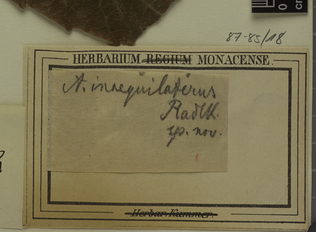 87-85/18
HERBARIUM REGIUM MONACENSE
A. inaequilaterus
Radlk.
sp. nov.
Herbar. Kummer.